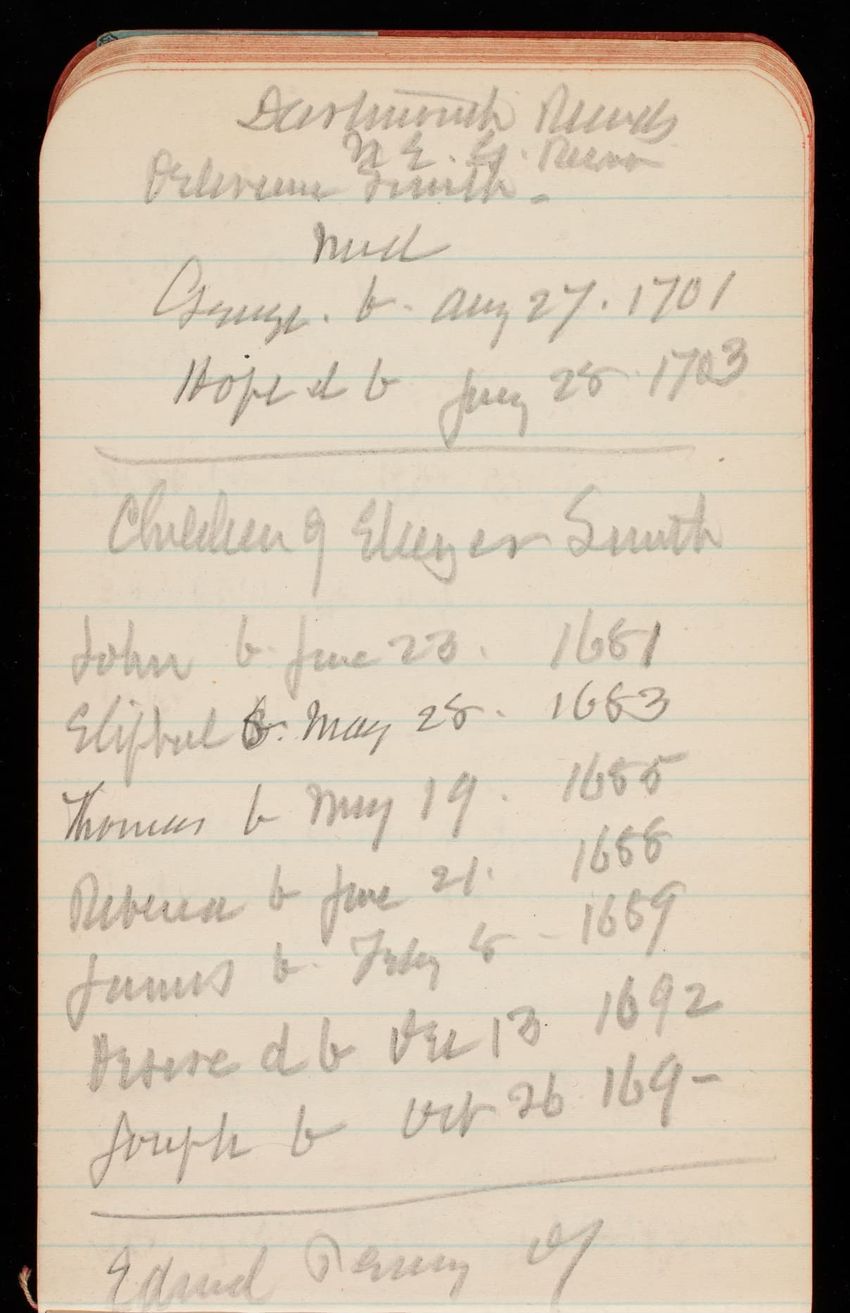 Dartmouth Records
N. E. G. Recor
Deliverence Smith -
had
George. b. Aug 27. 1701
Hope d b July 28 1703
Children of Eliezer Smith
John b. June 23. 1681
Eliphal b. May 28. 1683
Thomas b May 19. 1685
Rebecca b June 21. 1688
James b. Feby 8 - 1689
Desire d b Dec 13 1692
Joseph b Oct 26 169-
of